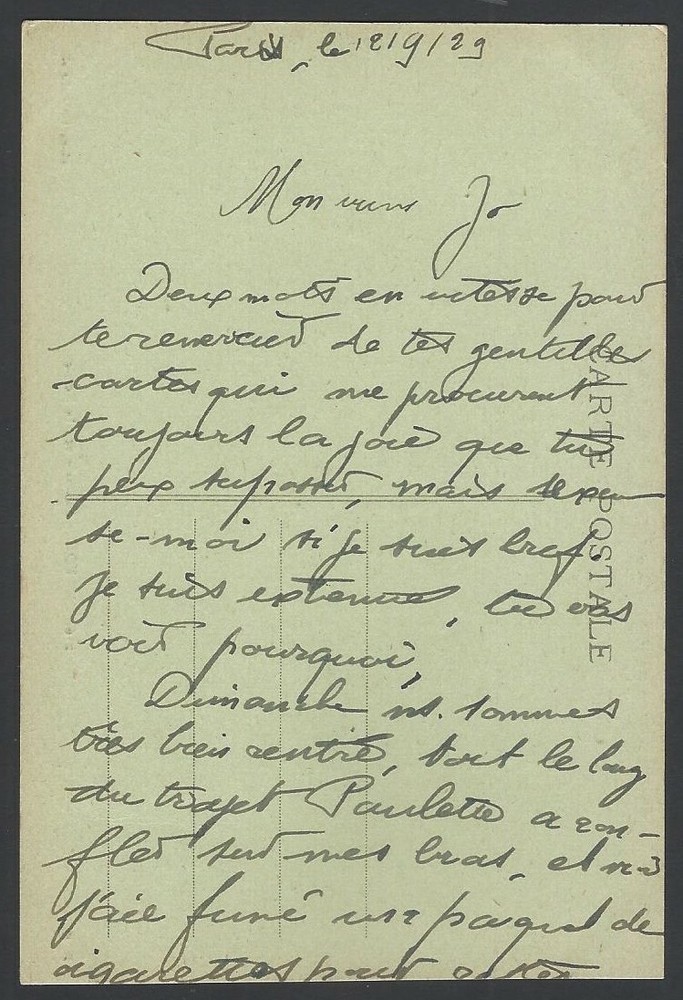 Paris, le 12/9/29
Mon vieux Jo
Deux mots en vitesse pour
te remercier de tes gentilles
cartes qui me procurent
toujours la joie que tu
peux supposer, mais
se-moi si je suis bref.
je suis extenué, tu vas
voir pourquoi,
Dimanche ns. sommes
très bien rentré, tout le long
du trajet Paulette a ron-
fler sur mes bras, et
j'ai fumé un paquet de
cigarettes pour
CARTE POSTALE